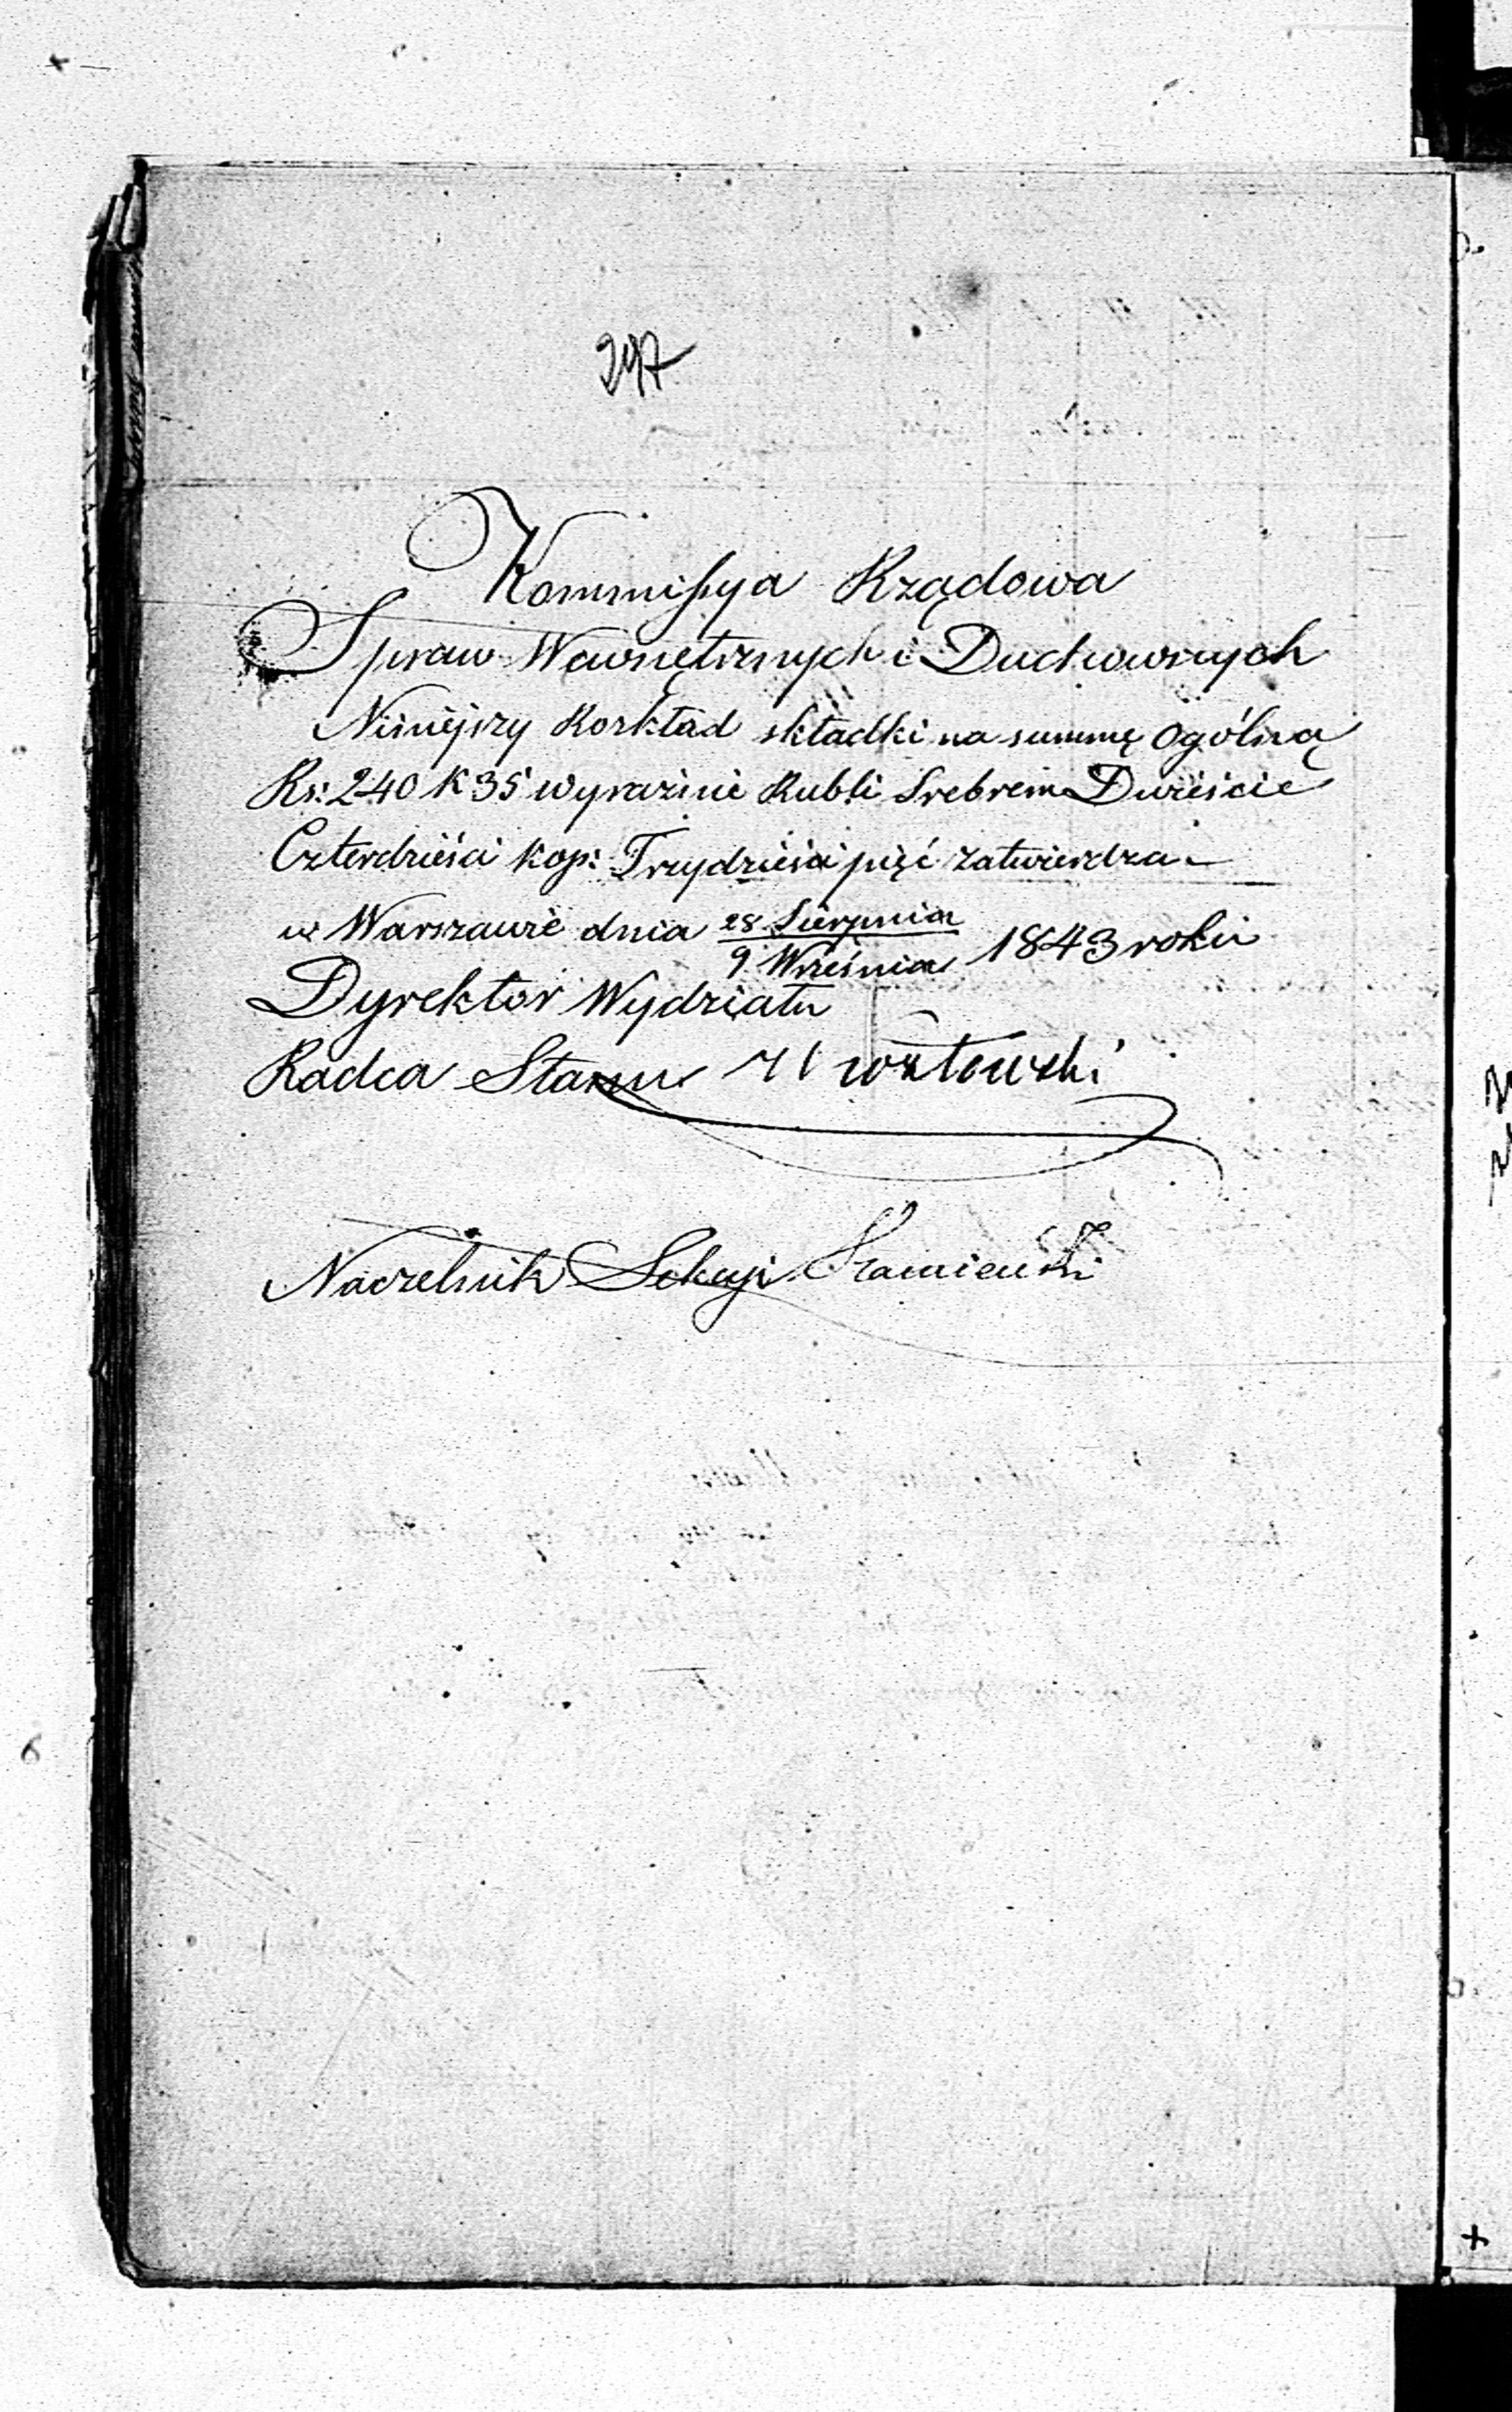 297
Kommissya Rządowa
Spraw Wewnętrznych i Duchownych
Niniejszy Rozkład składki na summę ogólną
Rs: 240 K 35 wyraźnie Rubli Srebrem Dwieście
Czterdzieści kop: Trzydzieści pięć zatwierdza.
w Warszawie dnia 28 Sierpnia / 9 Września 1843 roku
Dyrektor Wydziału
Radca Stanu
Naczelnik Sekcyi